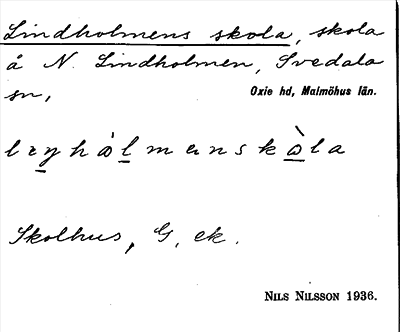 Lindholmens skola, skola
å N. Lindholmen, Svedala
sn,
Oxie hd, Malmöhus län.
Skolhus, G. ek.
NILS NILSSON 1936.